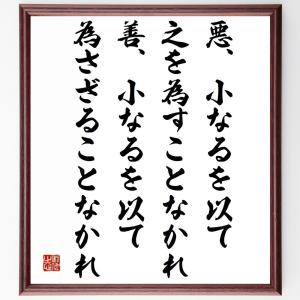 悪、小なるを以て
之を為すことなかれ
善、小なるを以て
為さざることなかれ